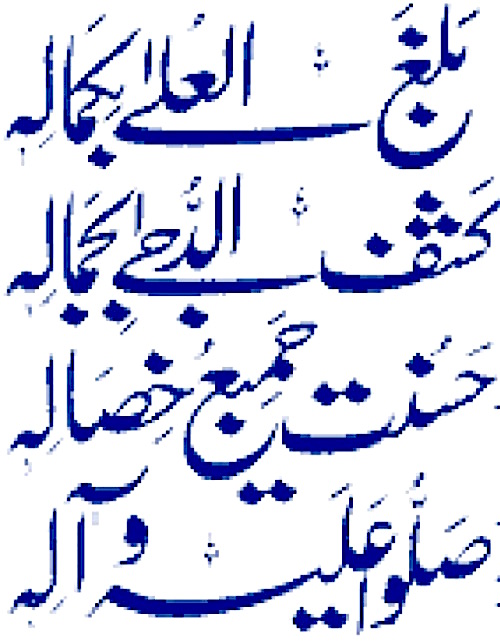 بَلَغَ العُلےٰ بِکَمَالِہٖ
کَشَفَ الدُّجےٰ بِجَمَالِہٖ
حَسُنَتْ جَمِیعُ خِصَالِہٖ
صَلُّوا عَلَیہِ وَآلِہٖ